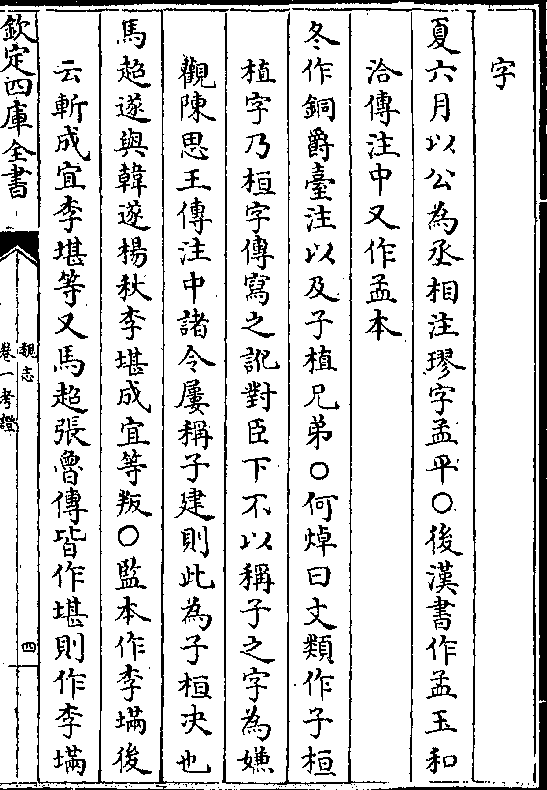 字
夏六月以公為丞相注璆字孟平○後漢書作孟玉和
洽傳注中又作孟本
冬作銅爵臺注以及子植兄弟○何焯曰文類作子桓
植字乃桓字傳寫之訛對臣下不以稱子之字為嫌
觀陳思王傳注中諸令屢稱子建則此為子桓決也
馬超遂與韓遂楊秋李堪成宜等叛○監本作李㙢後
云斬成宜李堪等又馬超張魯傳皆作堪則作李㙢
欽定四庫全書
魏志
卷一考證
四